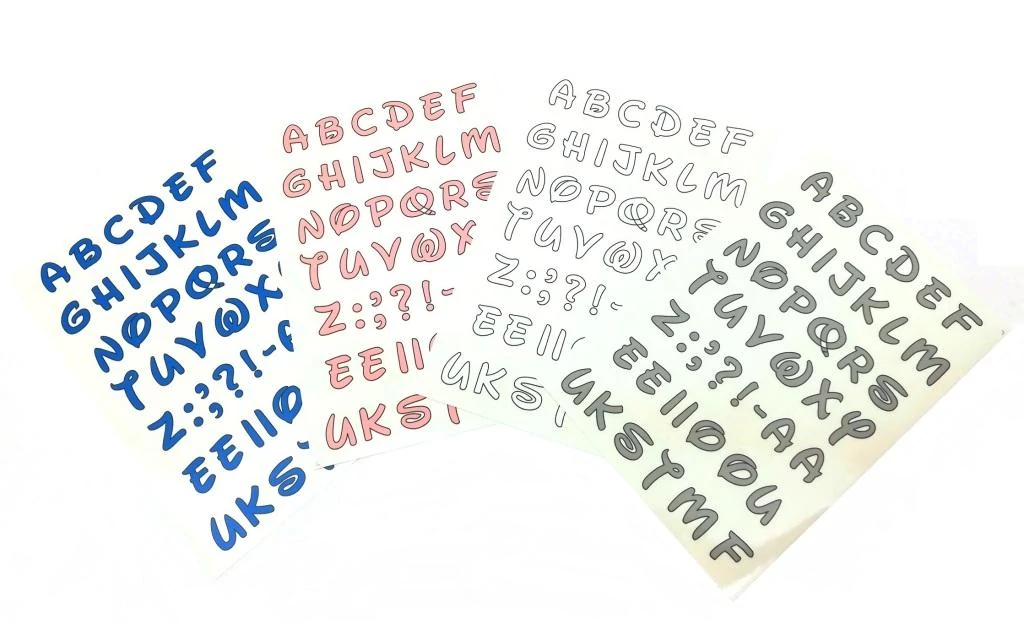 ABCDEF
GHIJKLM
NOPQRS
TUVWX
Z:;?!-
EEIIO
UKS
ABCDEF
GHIJKLM
NOPQRS
TUVWX
Z:;?!-
EEII
UKST
ABCDEF
GHIJKLM
NOPQRS
TUVWX
Z:;?!-
EEII
UKST
ABCDEF
GHIJKLM
NOPQRS
TUVWXY
Z:;?!-AA
EEIIOOU
UKSTMF